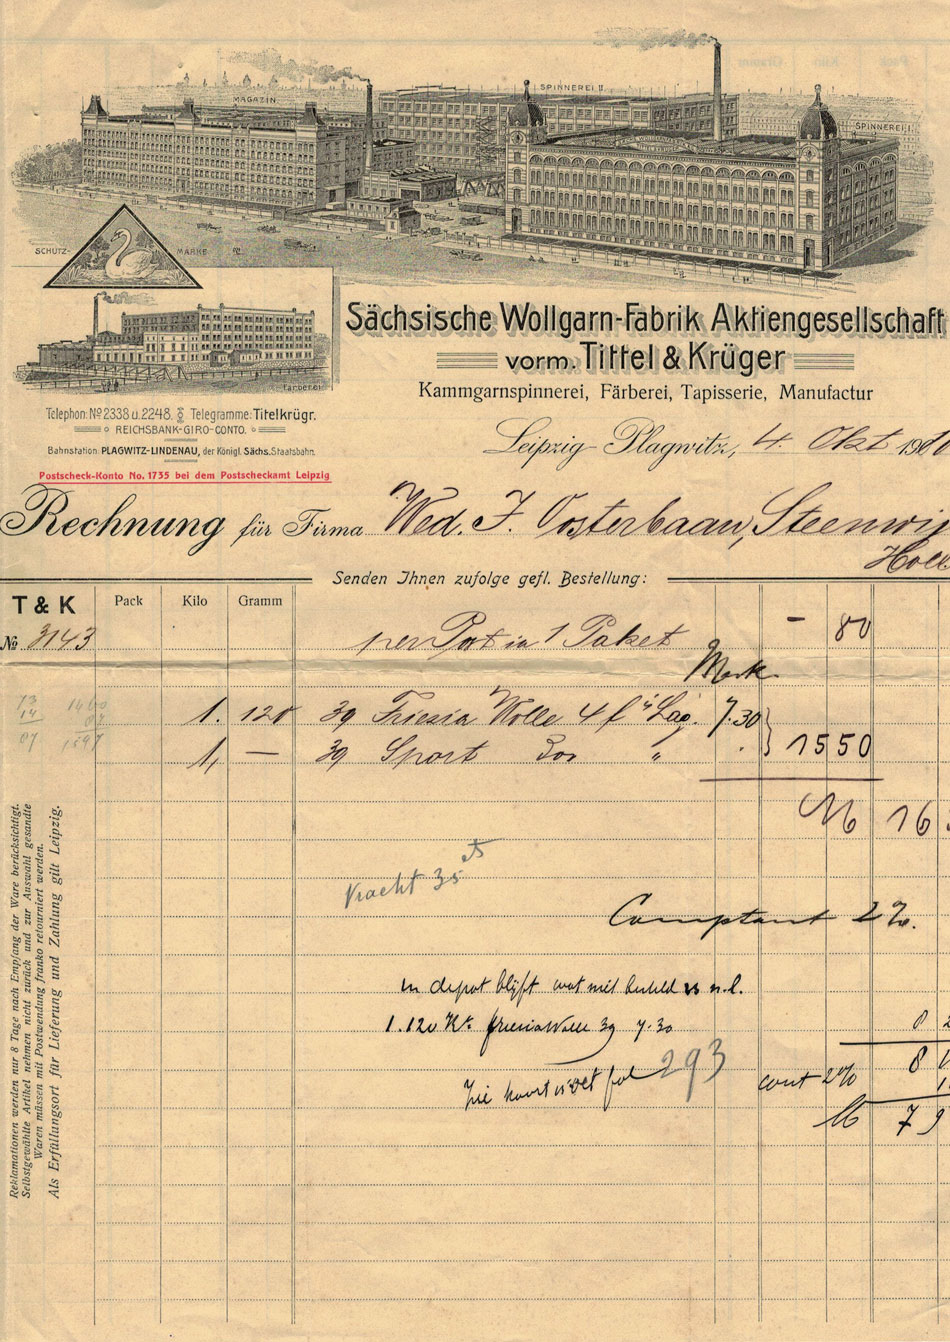 MAGAZIN.
SPINNEREI II
SPINNEREI I.
SCHUTZ- MARKE
Färberei
Sächsische Wollgarn-Fabrik Aktiengesellschaft
vorm. Tittel & Krüger
Kammgarnspinnerei, Färberei, Tapisserie, Manufactur
Telephon: No 2338 u. 2248. Telegramme: Titelkrügr.
REICHSBANK-GIRO-CONTO.
Bahnstation: PLAGWITZ-LINDENAU, der Königl. Sächs. Staatsbahn.
Postscheck-Konto No. 1735 bei dem Postscheckamt Leipzig
Leipzig-Plagwitz, 4. Okt 19
Rechnung für Firma Wed. J. Oosterbaan, Steenwij
Holl
Senden Ihnen zufolge gefl. Bestellung:
T & K Pack Kilo Gramm
No 3143 per Post in 1 Paket - 80
Mark
1. 120 39 Friesia Wolle 4 f " Lag. 7.30
1, — 39 Sport " 15 50
M 16
Vracht 35 ct
Comptant 2%.
in depot blijft
1.120 Ko. friesia Wolle 39 7.30 8
8
293 cont 2%
M 7 9
Reklamationen werden nur 8 Tage nach Empfang der Ware berücksichtigt.
Selbstgewählte Artikel nehmen nicht zurück und zur Auswahl gesandte
Waren müssen mit Postwendung franko retourniert werden.
Als Erfüllungsort für Lieferung und Zahlung gilt Leipzig.